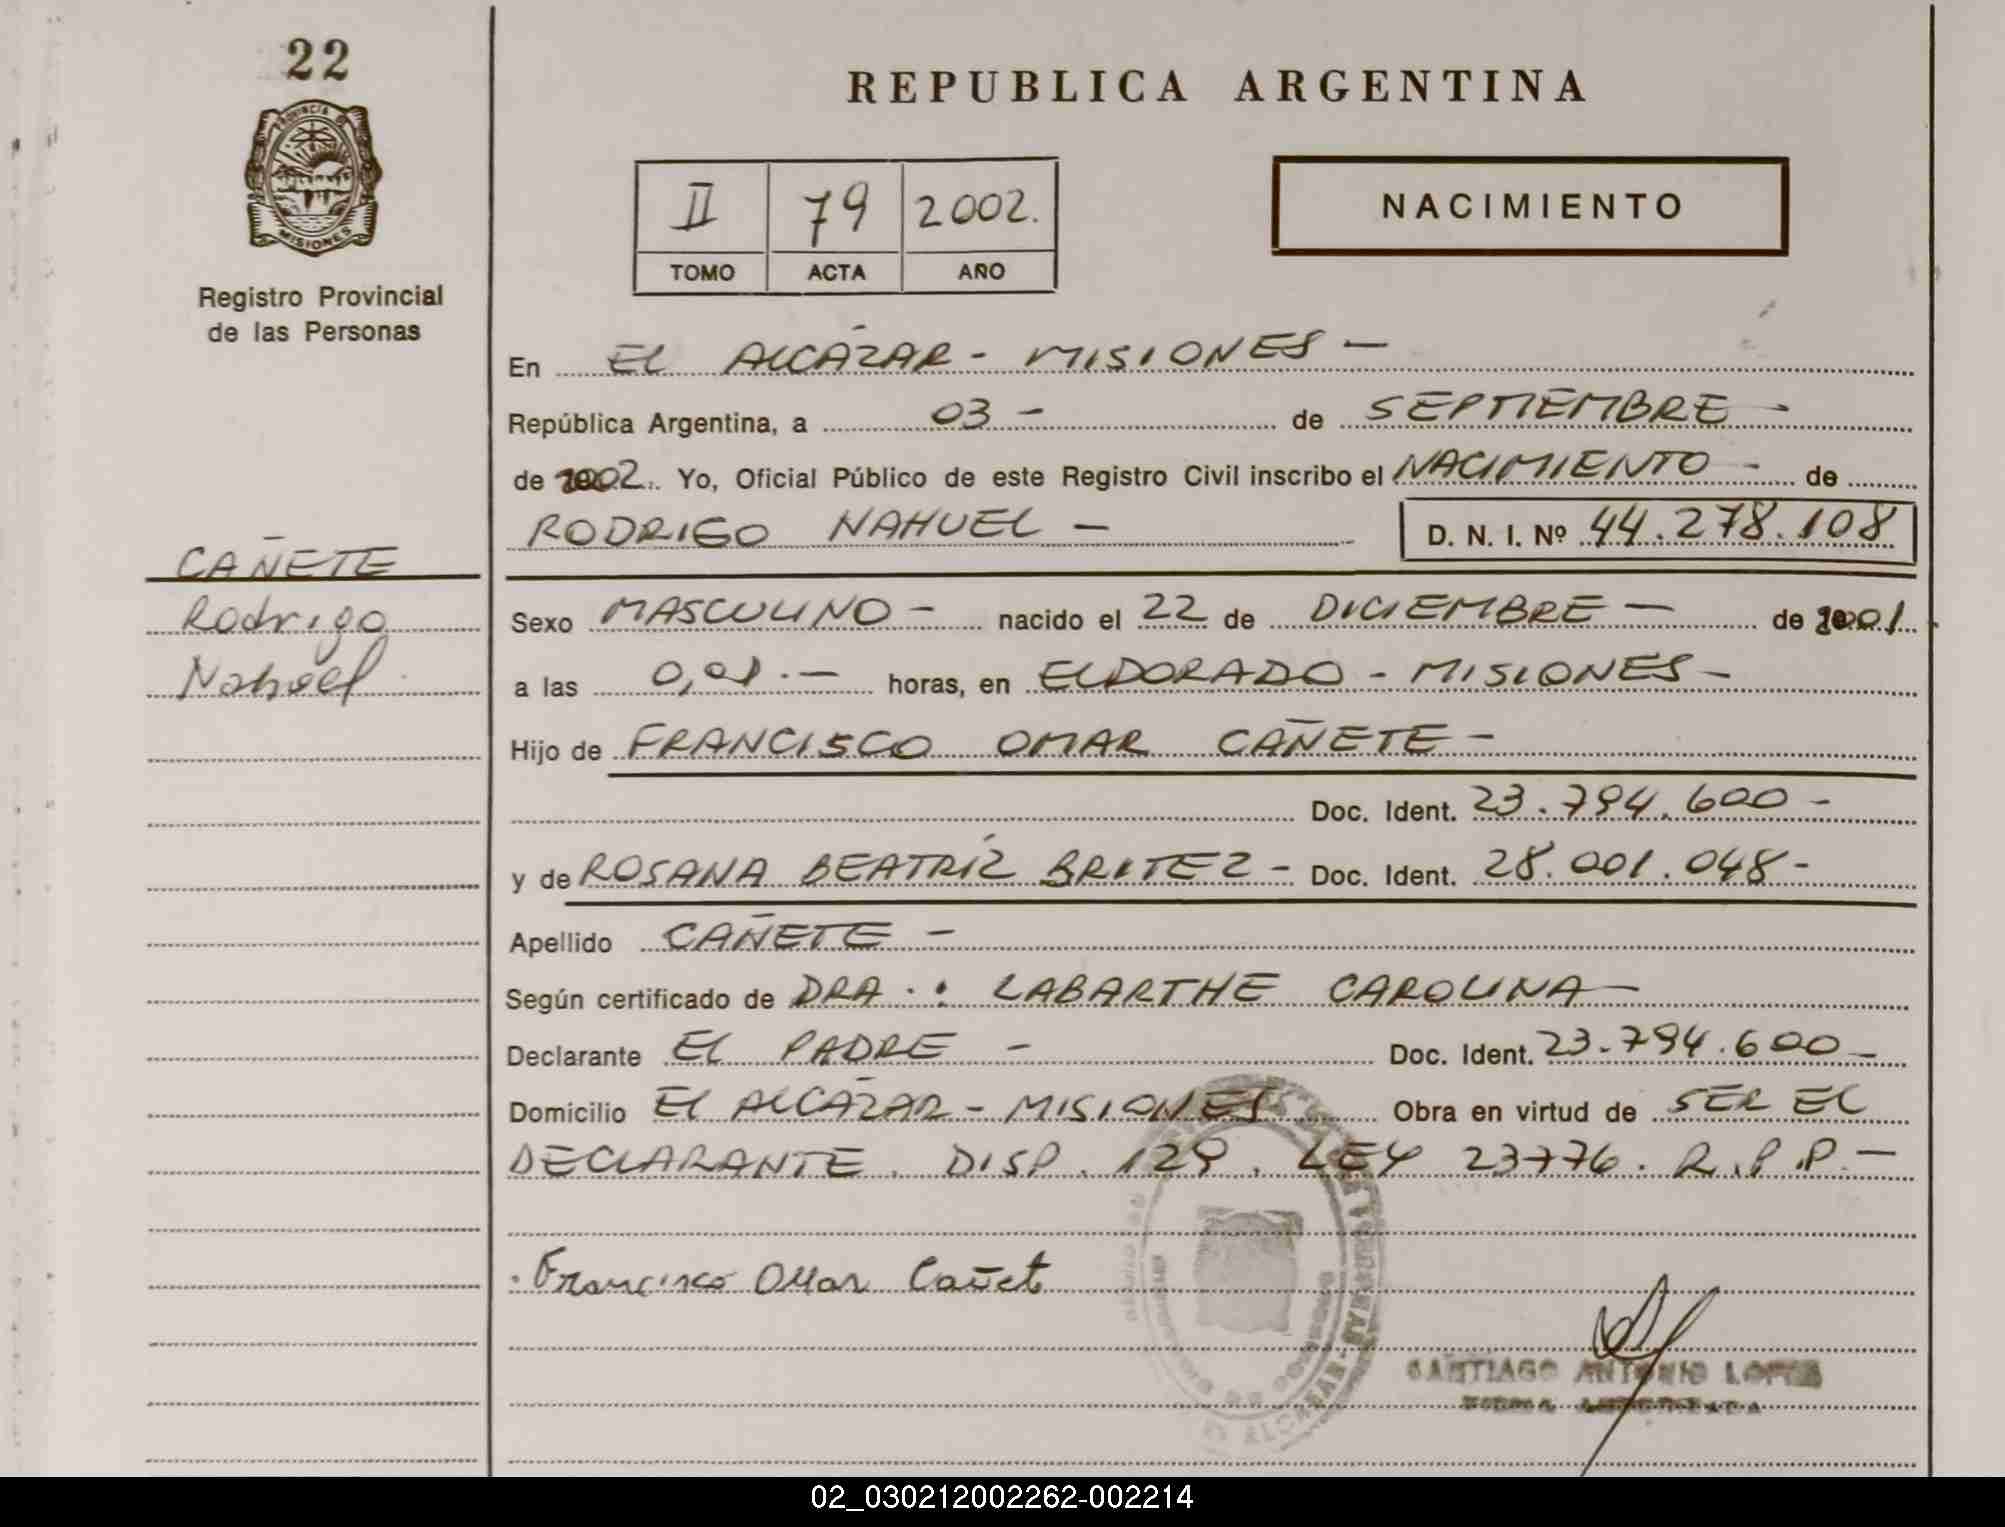 22
PROVINCIA DE
MISIONES
Registro Provincial
de las Personas
REPUBLICA ARGENTINA
II 79 2002.
TOMO ACTA AÑO
NACIMIENTO
En EL ALCÁZAR - MISIONES -
República Argentina, a 03 - de SEPTIEMBRE -
de 2002. Yo, Oficial Público de este Registro Civil inscribo el NACIMIENTO - de
RODRIGO NAHUEL - D. N. I. Nº 44.278.108
CAÑETE
Rodrigo
Nahuel
Sexo MASCULINO - nacido el 22 de DICIEMBRE - de 2001
a las 0,01.- horas, en ELDORADO - MISIONES -
Hijo de FRANCISCO OMAR CAÑETE -
Doc. Ident. 23.794.600 -
y de ROSANA BEATRÍZ BRITEZ - Doc. Ident. 28.001.048 -
Apellido CAÑETE -
Según certificado de DRA.: LABARTHE CAROLINA -
Declarante EL PADRE - Doc. Ident. 23.794.600 -
Domicilio EL ALCÁZAR - MISIONES Obra en virtud de SER EL
DECLARANTE. DISP. 129. LEY 23776. R.P.P. -
Francisco Omar Cañet
SANTIAGO ANTONIO LOPEZ
FIRMA AUTORIZADA
02_030212002262-002214